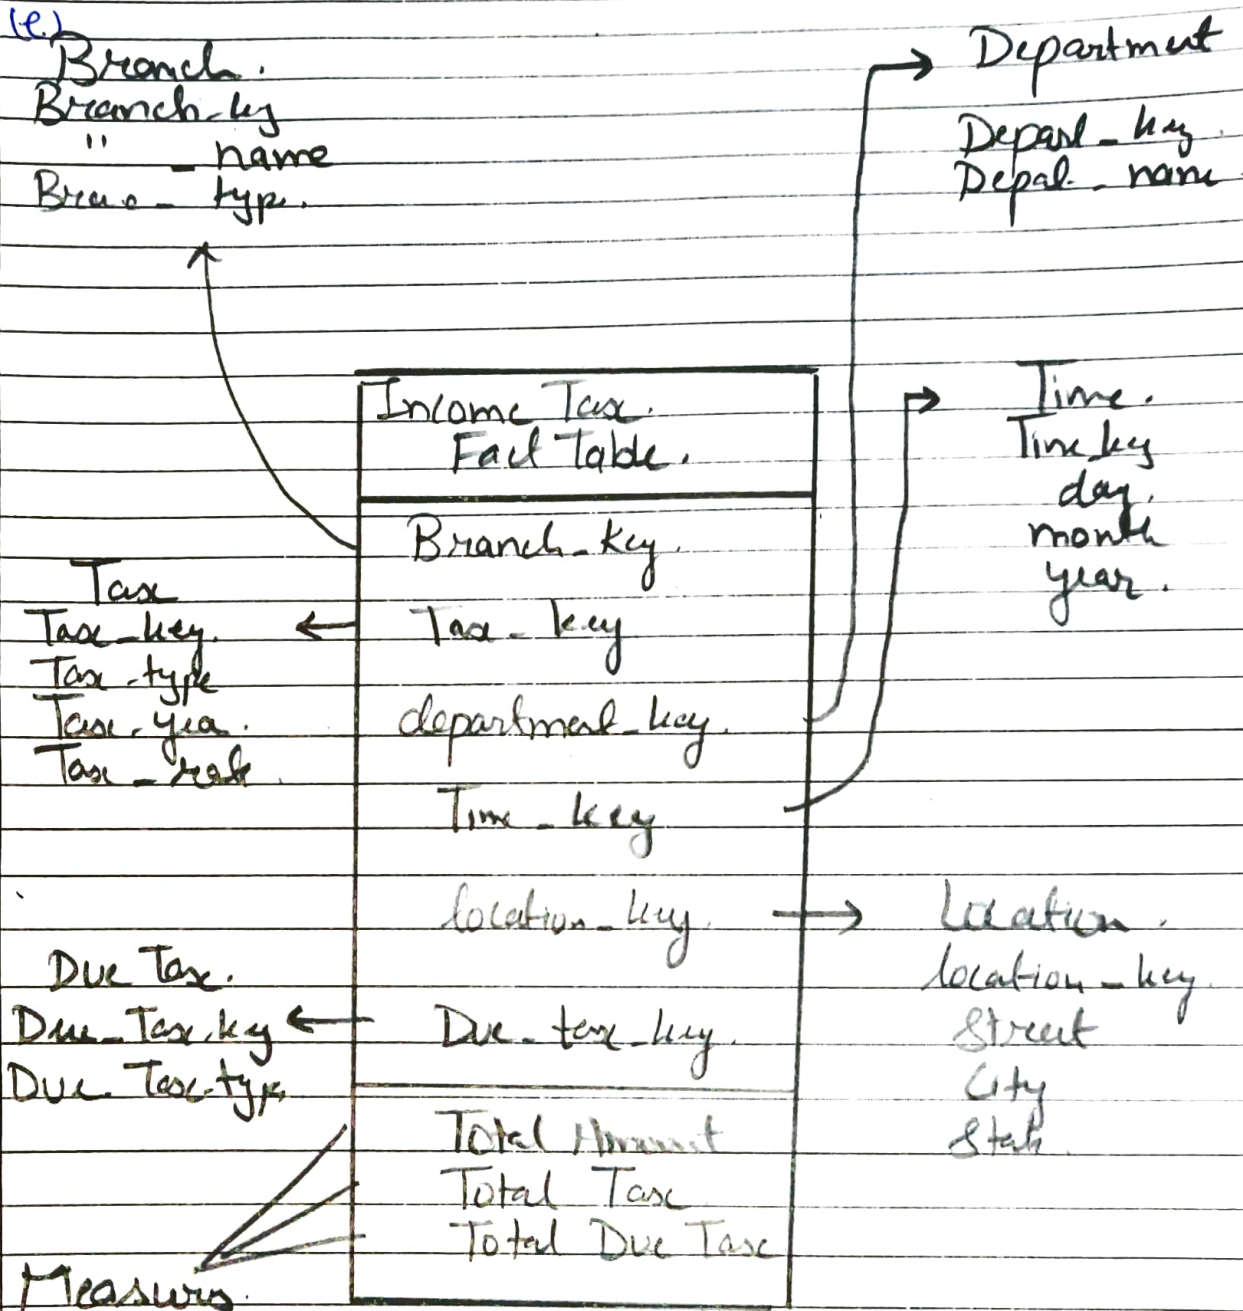 (e.)
Branch.
Branch-key
" _ name
Brac_ type.
Department
Depart_ key.
Depat. _ name
Income Tax.
Fact Table.
Branch_key.
Tax_ key
department_key.
Time_ key
location_key.
Due_ tax_key.
Total Amount
Total Tax
Total Due Tax
Time.
Time_key
day.
month
year.
Tax
Tax_key.
Tax-type
Tax-yea.
Tax_rate.
Location.
location_key.
Street
City
State
Due Tax.
Due_Tax.key
Due. Tax-type
Measures.